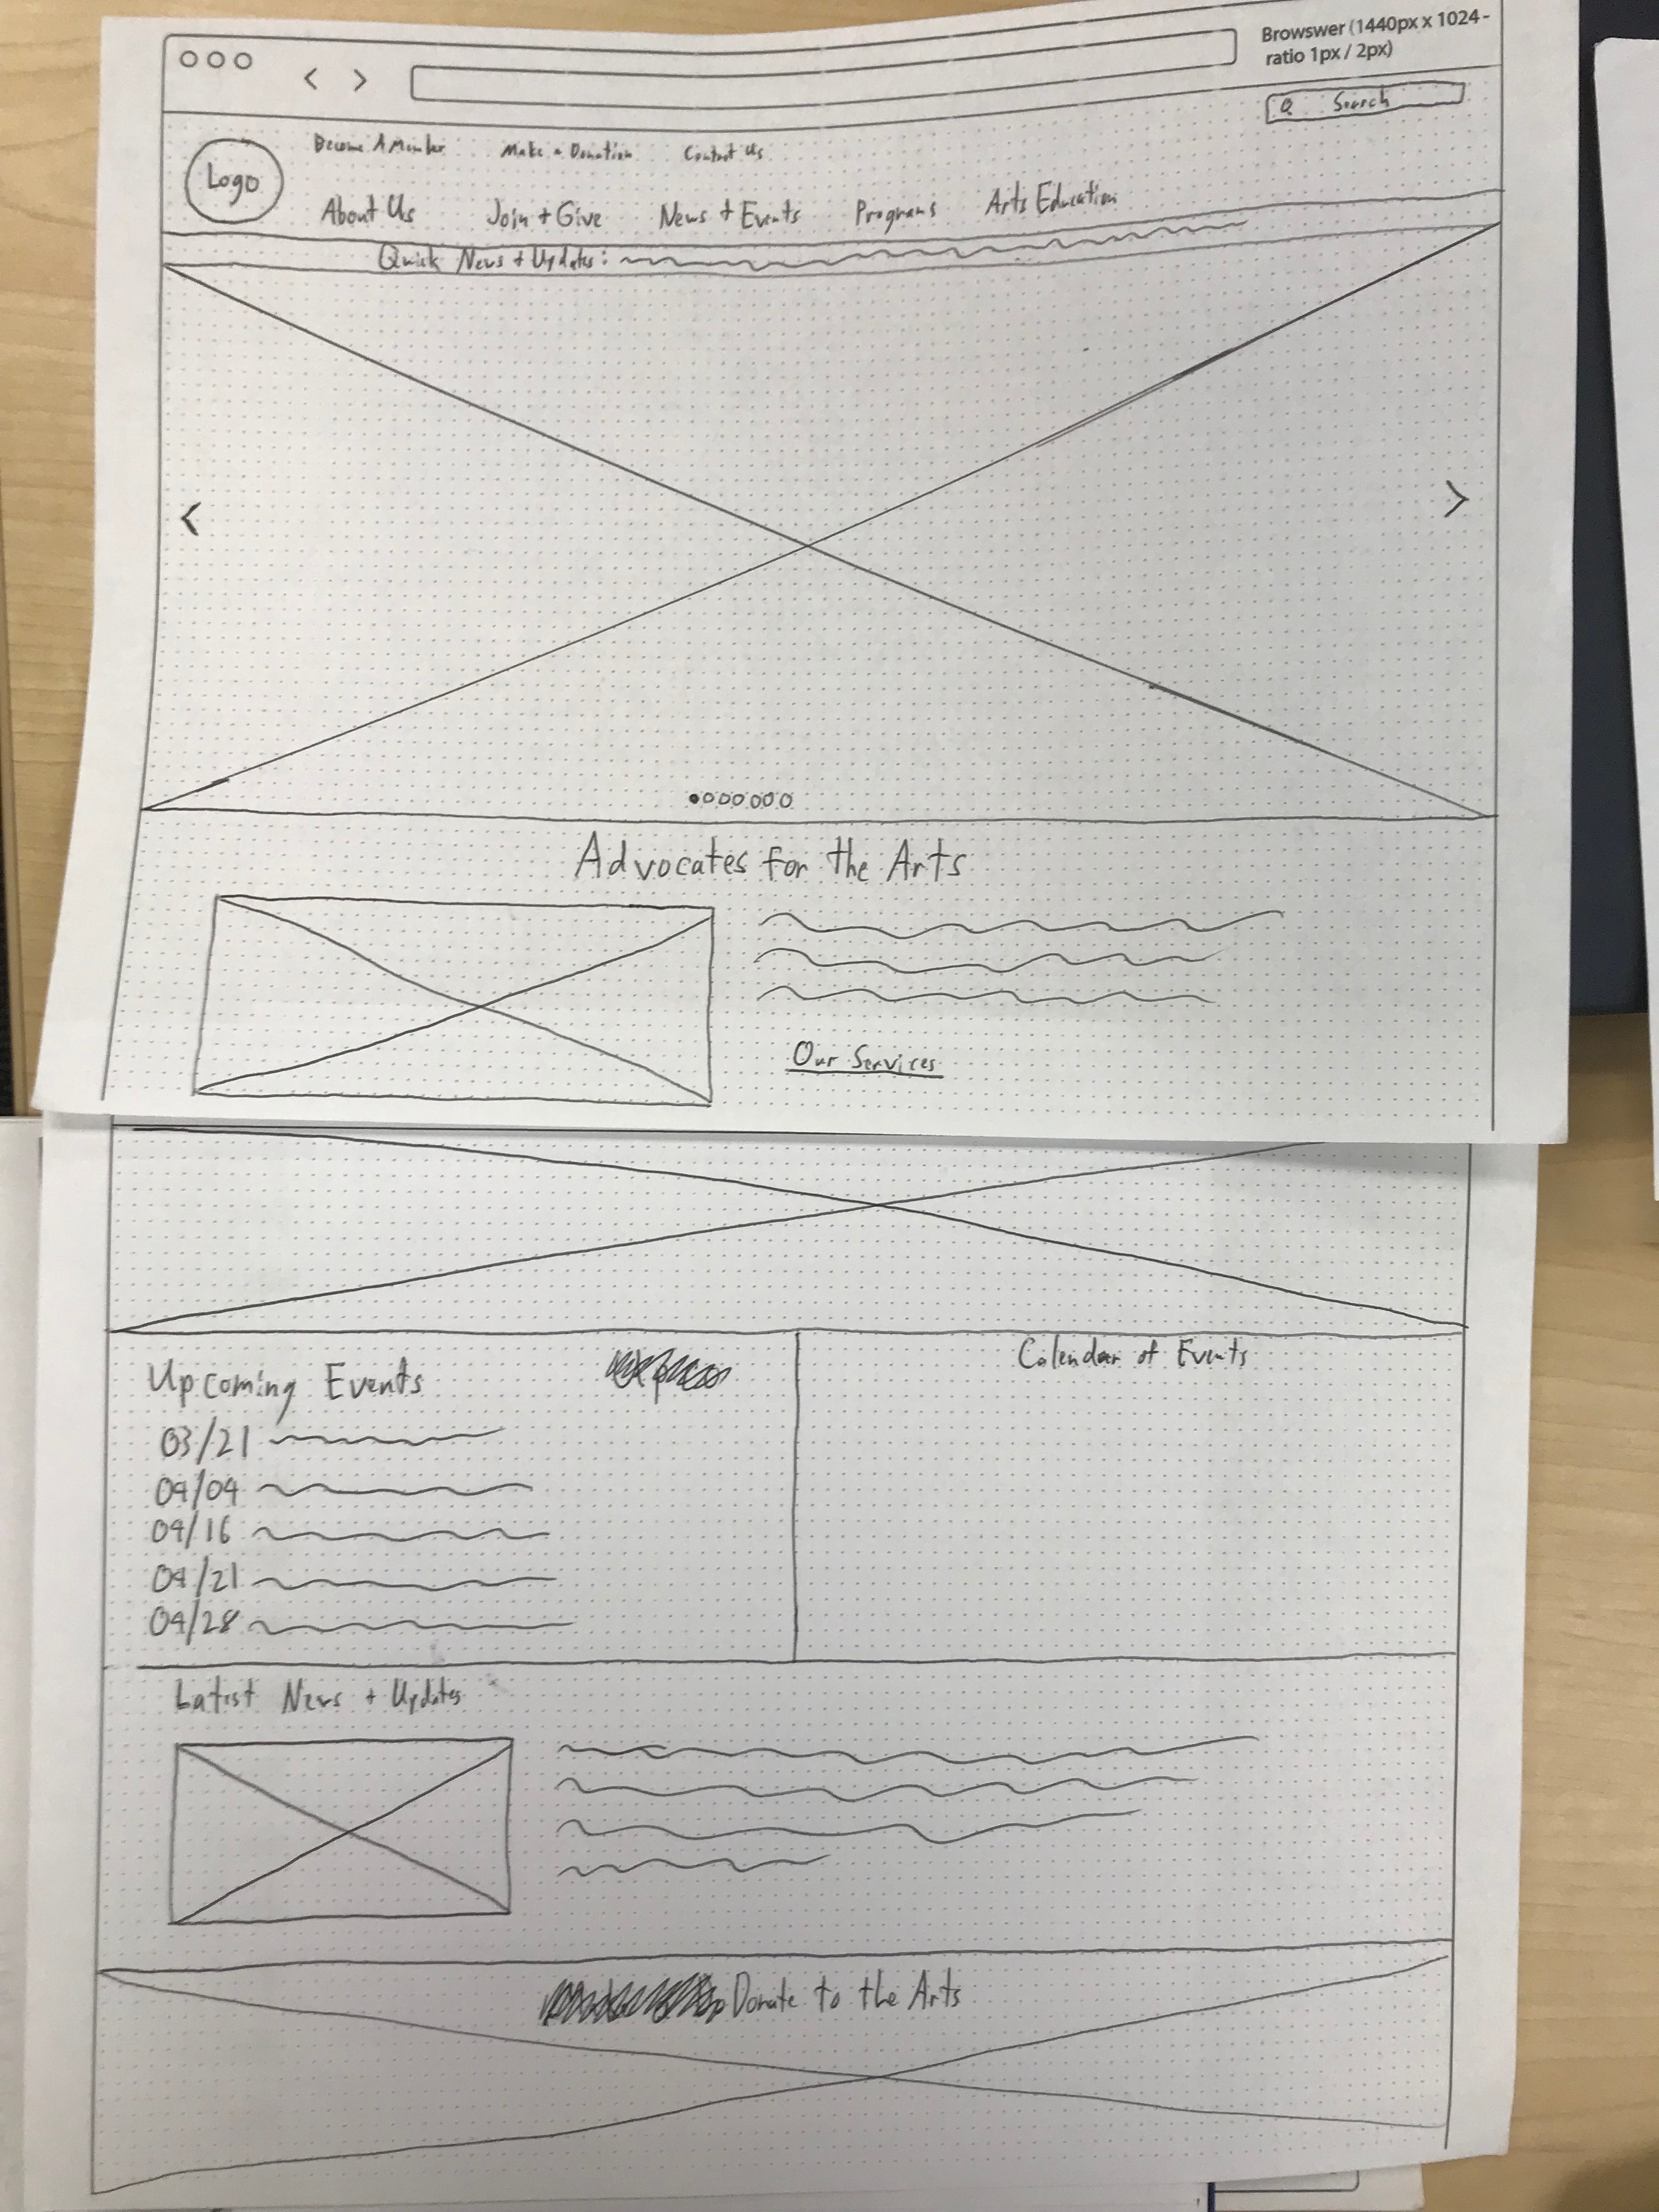 Browswer (1440px x 1024 -
ratio 1px / 2px)
Search
Become A Member Make a Donation Contact Us
Logo
About Us Join + Give News + Events Programs Arts Education
Quick News + Updates:
Advocates for the Arts
Our Services
Upcoming Events
Calendar of Events
03/21
04/04
04/16
04/21
04/28
Latest News + Updates
Donate to the Arts